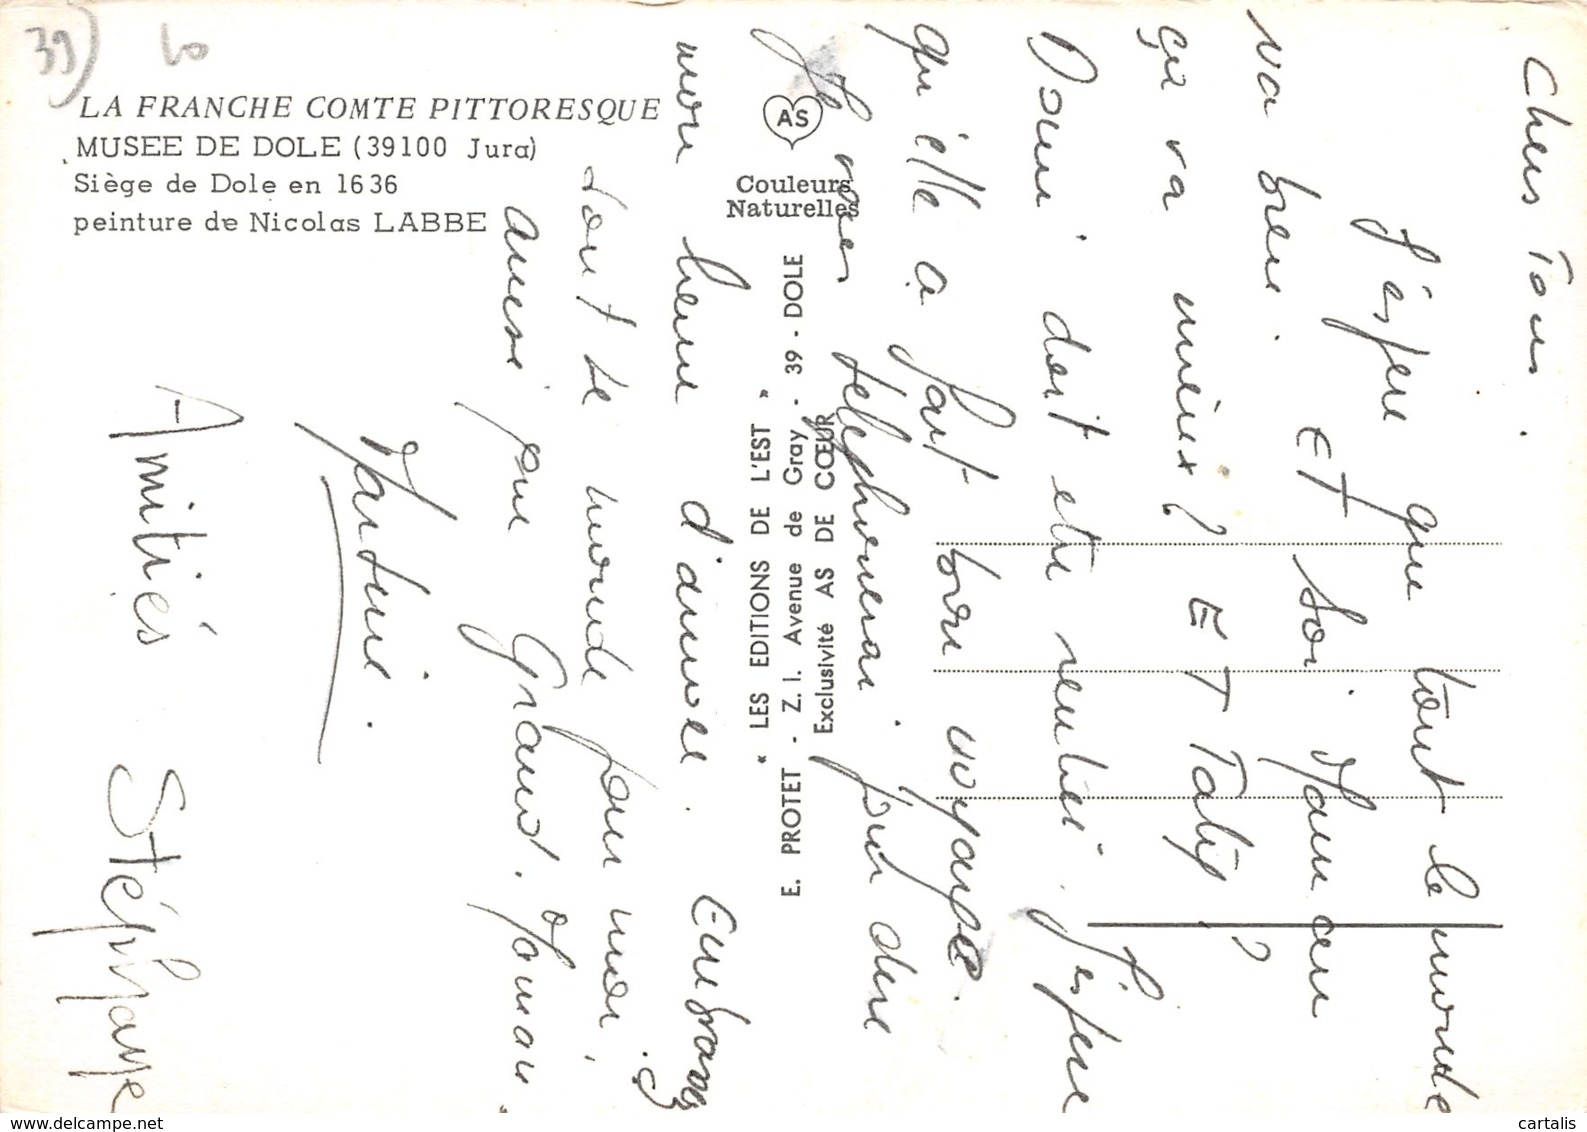 39) 10
LA FRANCHE COMTE PITTORESQUE
MUSEE DE DOLE (39100 Jura)
Siège de Dole en 1636
peinture de Nicolas LABBE
AS
Couleurs
Naturelles
« LES EDITIONS DE L'EST »
E. PROTET - Z.I. Avenue de Gray - 39 - DOLE
Exclusivité AS DE CŒUR
Chers Tous.
J'éspère que tout le monde
va bien. ET toi Maman
ça va mieux? ET Taty?
Domi doit etre rentrée. J'éspère
qu'elle a fait bon voyage.
Je vous téléphonerai pour dire
mon heure d'arrivée. Embrassez
tout le monde pour moi,
aussi pour Grand. Maman
Martine.
Amitiés Stéphane
www.delcampe.net
cartalis